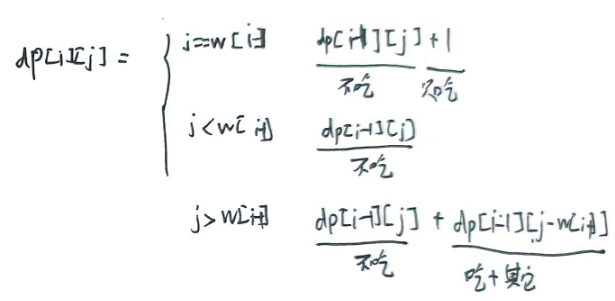 dp[i][j] =
j==w[i-1] dp[i-1][j] + 1
不吃 只吃
j<w[i-1] dp[i-1][j]
不吃
j>w[i-1] dp[i-1][j] + dp[i-1][j-w[i-1]]
不吃 吃+其它